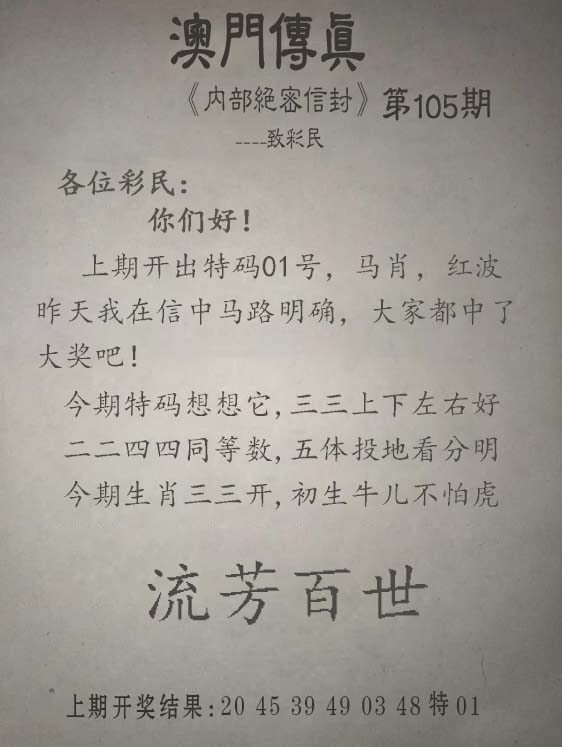 澳門傳眞
《内部絕密信封》第105期
----致彩民
各位彩民:
你们好!
上期开出特码01号, 马肖, 红波
昨天我在信中马路明确, 大家都中了
大奖吧!
今期特码想想它,三三上下左右好
二二四四同等数,五体投地看分明
今期生肖三三开,初生牛儿不怕虎
流芳百世
上期开奖结果:20 45 39 49 03 48 特 01